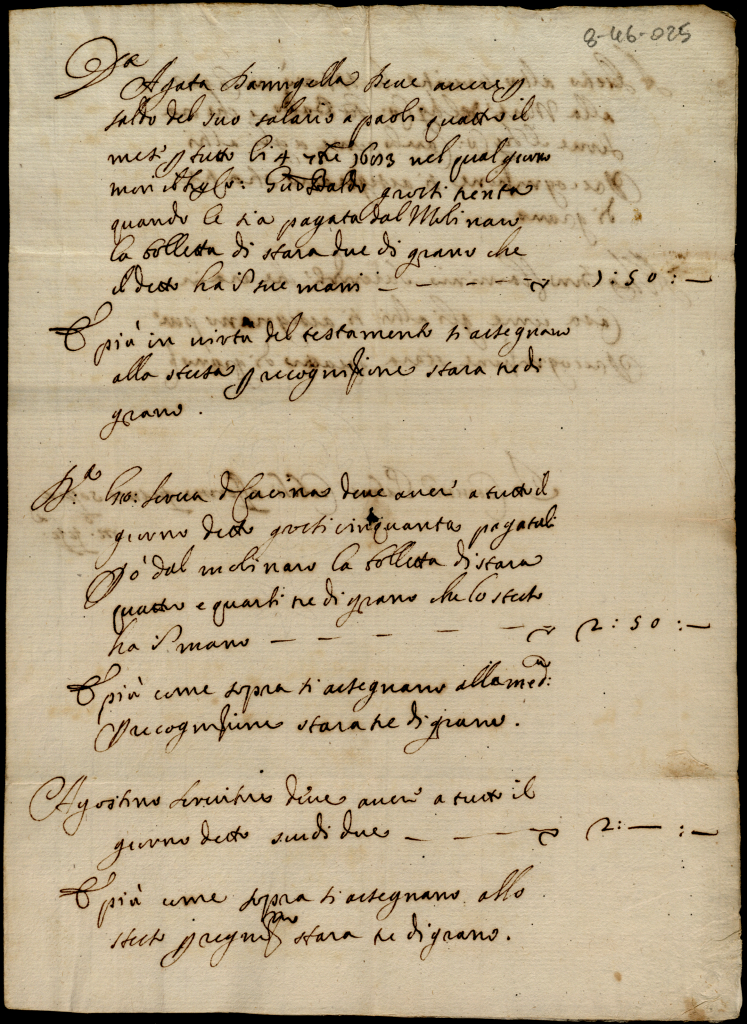 8-46-025
D.a Agata Dere avere p
saldo del suo salario a paoli quattro il
mese p tutto li 4 7bre 1693 nel qual giorno
morì il grossi trenta
quando le sia pagata dal Molinaro
la bolletta di stara due di grano che
il detto ha in sue mani — — — — — — 1:50:—
E più in virtù del testamento si assegnano
alla stessa p recognizione stara tre di
grano.
serva di Cucina deve aver a tutto il
giorno detto grossi cinquanta pagatali
pò dal molinaro la bolletta di stara
quattro e quarti tre di grano che lo stesso
ha in mano — — — — — — 2:50:—
E più come sopra si assegnano alla med.a:
p recognizione stara tre di grano.
Agostino servitore deve aver a tutto il
giorno detto scudi due — — — — 2:—:—
E più come sopra si assegnano allo
stesso p recogni.ne stara tre di grano.